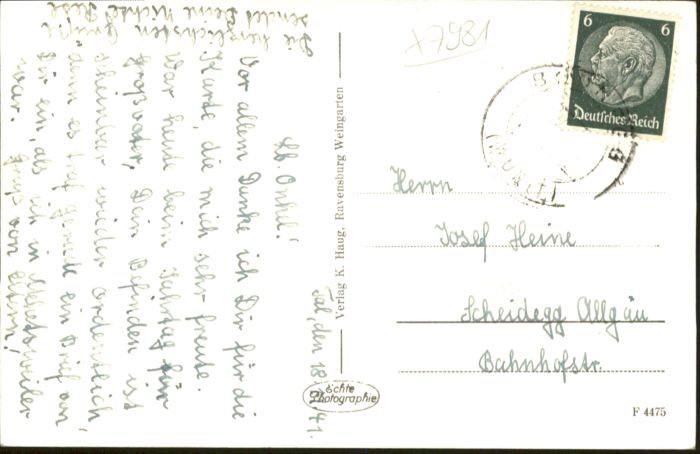 Tal, den 18. 41.
Lb. Onkel!
Vor allem Danke ich Dir für die
Karte, die mich sehr freute.
War heute beim Jahrtag für
Großvater, Dein Befinden ist
scheinbar wieder ordentlich
denn es traf gerade ein Brief von
Dir ein, als ich in
war. Gruß von Eltern!
Die herzlichsten Grüße
sendet Deine Nichte Resl
Verlag K. Haug, Ravensburg Weingarten
Echte
Photographie
x7981
6 6
Deutsches Reich
Herrn
Josef Heine
Scheidegg Allgäu
Bahnhofstr.
F 4475